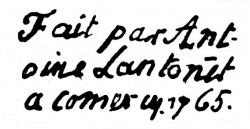 Fait par Ant-
oine Lantonèt
a comercy. 1765.